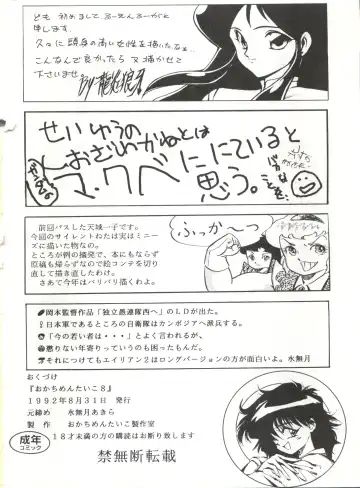 ども 初めまして、ふーえんふーがと
申します。
久々に頭身の高い女性を描いたなぁ…
こんなんで良かったら 又 描かせて
下さいませ
せいゆうの
おざわいかねとは
マ・クベ ににていると
思う。
ふっか〜っ
前回パスした天城一子です。
今回のサイレントねたは実はミニー
ズに描いた物なの。
ところが例の摘発で、本にもならず
原稿も帰らずなので絵コンテを切り
直して描き直したわけ。
さあて今年はバリバリ描くわよ。
●岡本監督作品「独立愚連隊西へ」のLDが出た。
●日本軍であるところの自衛隊はカンボジアへ派兵する。
●「今の若い者は・・・」とよく言われるが、
●懲りない年寄りっていうのも困ったもんだ。
●それにつけてもエイリアン2はロングバージョンの方が面白いよ。水無月
おくづけ
『おかちめんたいこ8』
1992年8月31日 発行
元締め 水無月あきら
製作 おかちめんたいこ製作室
成年
コミック
18才未満の方の購読はお断り致します
禁無断転載